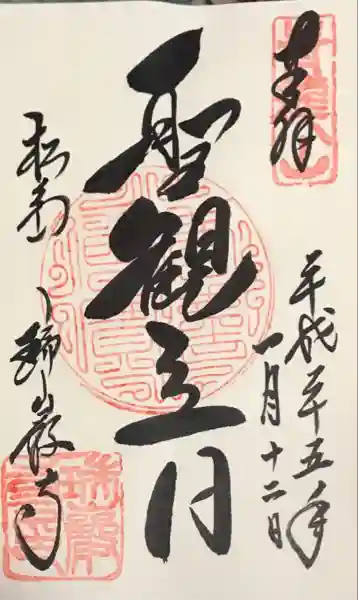 奉拝
平成二十五年
一月十二日
聖観立日
松島
瑞巌寺